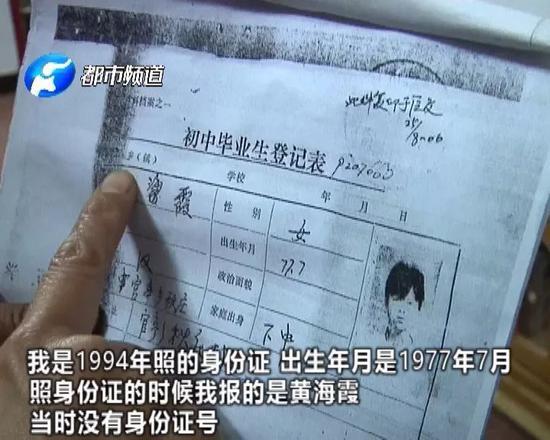 都市频道
料档案之一
此件复印于
25/8-06
初中毕业生登记表 9207003
乡(镇) 学校 年 月 日
霞 性别 女
出生年月 77.7
汉 政治面貌
家庭出身 下中
我是1994年照的身份证 出生年月是1977年7月
照身份证的时候我报的是黄海霞
当时没有身份证号